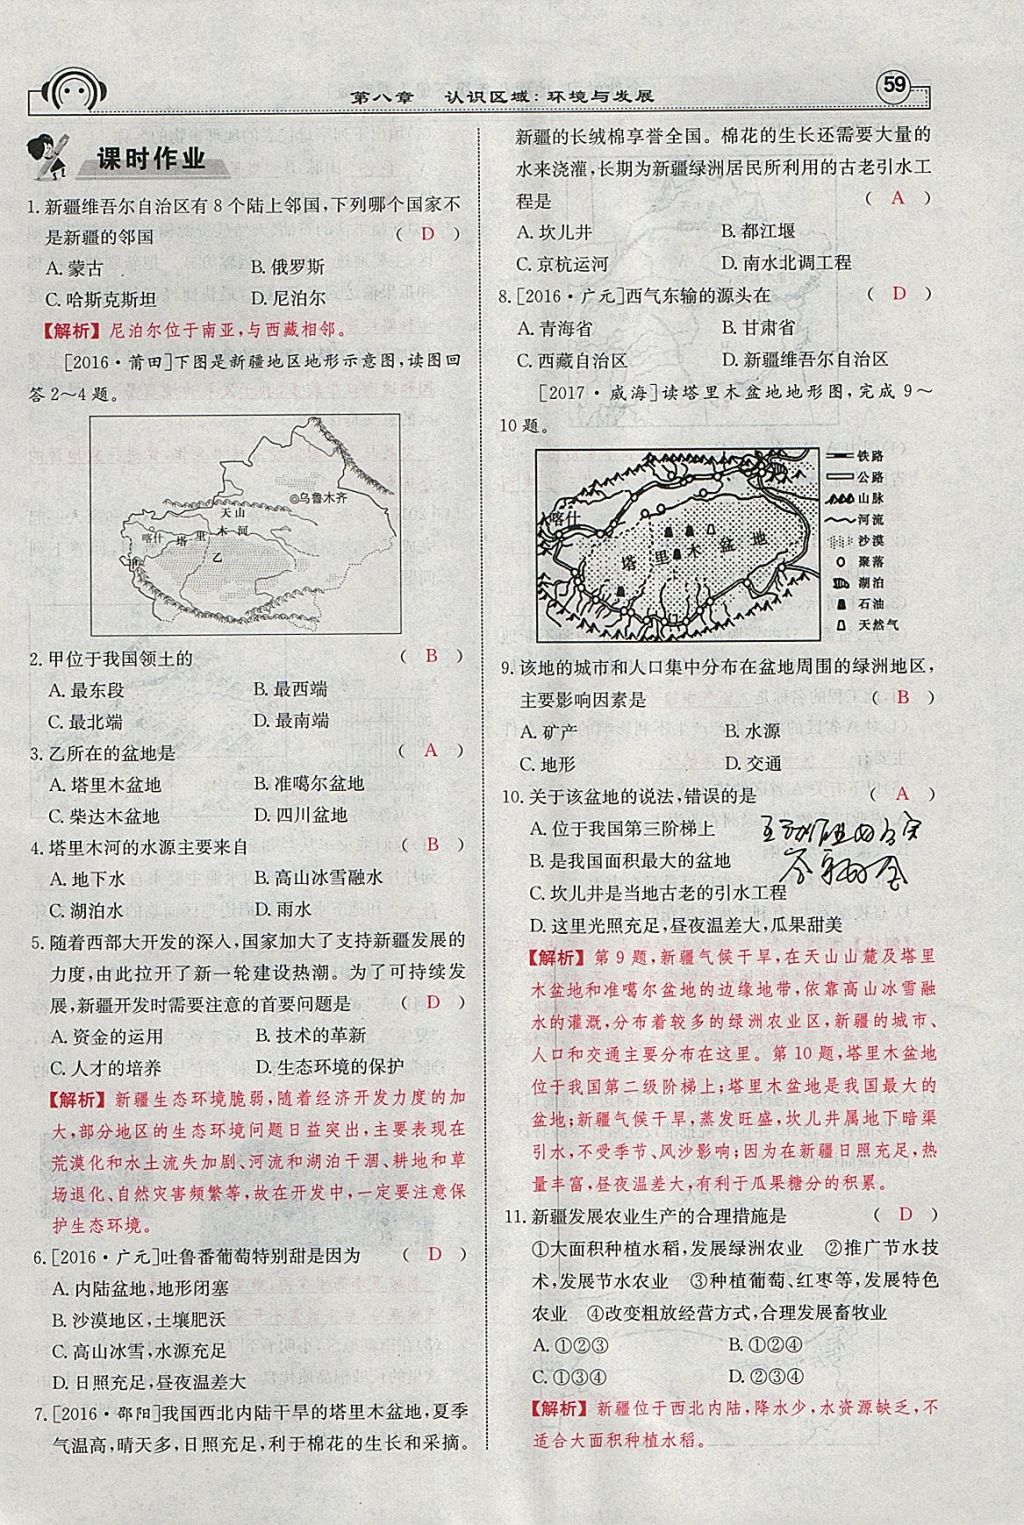 第八章 认识区域:环境与发展
59
课时作业
1.新疆维吾尔自治区有8个陆上邻国,下列哪个国家不
是新疆的邻国 ( D )
A.蒙古 B.俄罗斯
C.哈斯克斯坦 D.尼泊尔
【解析】尼泊尔位于南亚,与西藏相邻。
[2016·莆田]下图是新疆地区地形示意图,读图回
答2～4题。
乌鲁木齐
天山
喀什 塔里木河
乙
2.甲位于我国领土的 ( B )
A.最东段 B.最西端
C.最北端 D.最南端
3.乙所在的盆地是 ( A )
A.塔里木盆地 B.准噶尔盆地
C.柴达木盆地 D.四川盆地
4.塔里木河的水源主要来自 ( B )
A.地下水 B.高山冰雪融水
C.湖泊水 D.雨水
5.随着西部大开发的深人,国家加大了支持新疆发展的
力度,由此拉开了新一轮建设热潮。为了可持续发
展,新疆开发时需要注意的首要问题是 ( D )
A.资金的运用 B.技术的革新
C.人才的培养 D.生态环境的保护
【解析】新疆生态环境脆弱,随着经济开发力度的加
大,部分地区的生态环境问题日益突出,主要表现在
荒漠化和水土流失加剧、河流和湖泊干涸、耕地和草
场退化、自然灾害频繁等,故在开发中,一定要注意保
护生态环境。
6.[2016·广元]吐鲁番葡萄特别甜是因为 ( D )
A.内陆盆地,地形闭塞
B.沙漠地区,土壤肥沃
C.高山冰雪,水源充足
D.日照充足,昼夜温差大
7.[2016·邵阳]我国西北内陆干旱的塔里木盆地,夏季
气温高,晴天多,日照充足,利于棉花的生长和采摘。
新疆的长绒棉享誉全国。棉花的生长还需要大量的
水来浇灌,长期为新疆绿洲居民所利用的古老引水工
程是 ( A )
A.坎儿井 B.都江堰
C.京杭运河 D.南水北调工程
8.[2016·广元]西气东输的源头在 ( D )
A.青海省 B.甘肃省
C.西藏自治区 D.新疆维吾尔自治区
[2017·威海]读塔里木盆地地形图,完成9～
10题。
喀什
塔里木盆地
铁路
公路
山脉
河流
沙漠
聚落
湖泊
石油
天然气
9.该地的城市和人口集中分布在盆地周围的绿洲地区,
主要影响因素是 ( B )
A.矿产 B.水源
C.地形 D.交通
10.关于该盆地的说法,错误的是 ( A )
A.位于我国第三阶梯上
B.是我国面积最大的盆地
C.坎儿井是当地古老的引水工程
D.这里光照充足,昼夜温差大,瓜果甜美
【解析】第9题,新疆气候干旱,在天山山麓及塔里
木盆地和准噶尔盆地的边缘地带,依靠高山冰雪融
水的灌溉,分布着较多的绿洲农业区,新疆的城市、
人口和交通主要分布在这里。第10题,塔里木盆地
位于我国第二级阶梯上;塔里木盆地是我国最大的
盆地;新疆气候干旱,蒸发旺盛,坎儿井属地下暗渠
引水,不受季节、风沙影响;因为在新疆日照充足,热
量丰富,昼夜温差大,有利于瓜果糖分的积累。
11.新疆发展农业生产的合理措施是 ( D )
①大面积种植水稻,发展绿洲农业 ②推广节水技
术,发展节水农业 ③种植葡萄、红枣等,发展特色
农业 ④改变粗放经营方式,合理发展畜牧业
A.①②③ B.①②④
C.①③④ D.②③④
【解析】新疆位于西北内陆,降水少,水资源缺乏,不
适合大面积种植水稻。